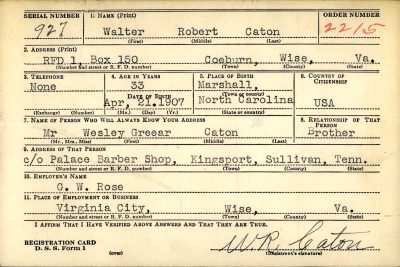 SERIAL NUMBER 1. NAME (Print) ORDER NUMBER
927 Walter Robert Caton 2215
(First) (Middle) (Last)
2. ADDRESS (Print)
RFD 1, Box 150 Coeburn, Wise, Va.
(Number and street or R. F. D. number) (Town) (County) (State)
3. TELEPHONE 4. AGE IN YEARS 5. PLACE OF BIRTH 6. COUNTRY OF CITIZENSHIP
None 33 Marshall,
DATE OF BIRTH (Town or county)
Apr, 21. 1907 North Carolina USA
(Exchange) (Number) (Mo.) (Day) (Yr.) (State or country)
7. NAME OF PERSON WHO WILL ALWAYS KNOW YOUR ADDRESS 8. RELATIONSHIP OF THAT PERSON
Mr Wesley Greear Caton Brother
(Mr., Mrs., Miss) (First) (Middle) (Last)
9. ADDRESS OF THAT PERSON
c/o Palace Barber Shop, Kingsport, Sullivan, Tenn.
(Number and street or R. F. D. number) (Town) (County) (State)
10. EMPLOYER'S NAME
G. W. Rose
11. PLACE OF EMPLOYMENT OR BUSINESS
Virginia City, Wise, Va.
(Number and street or R. F. D. number) (Town) (County) (State)
I AFFIRM THAT I HAVE VERIFIED ABOVE ANSWERS AND THAT THEY ARE TRUE.
REGISTRATION CARD
D. S. S. Form 1 (over) W.R. Caton
(Registrant's signature)